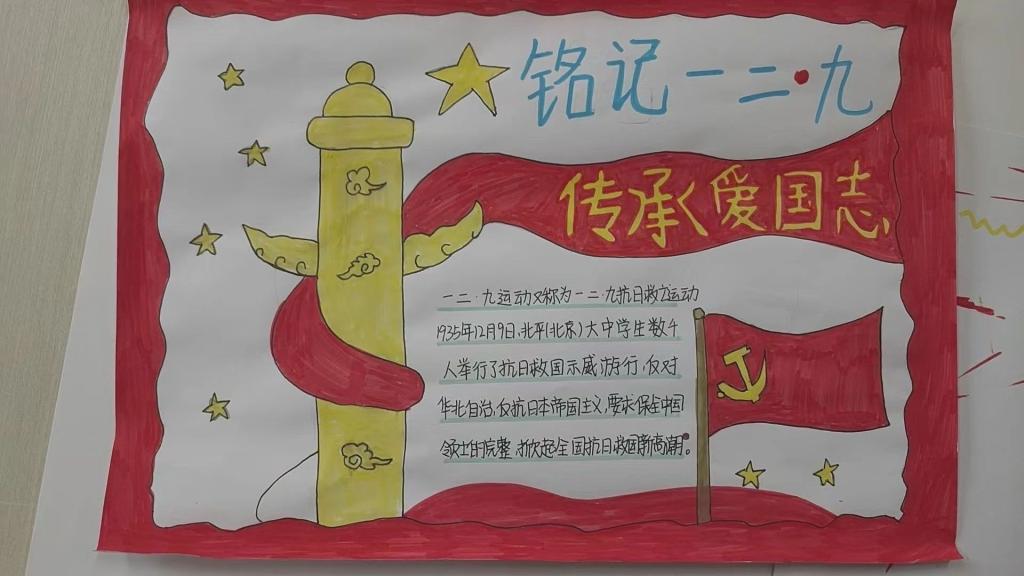 铭记一二·九
传承爱国志
一二·九运动又称为一二·九抗日救亡运动
1935年12月9日,北平(北京)大中学生数千
人举行了抗日救国示威游行,反对
华北自治,反抗日本帝国主义,要求保全中国
领土的完整,掀起全国抗日救国新高潮。